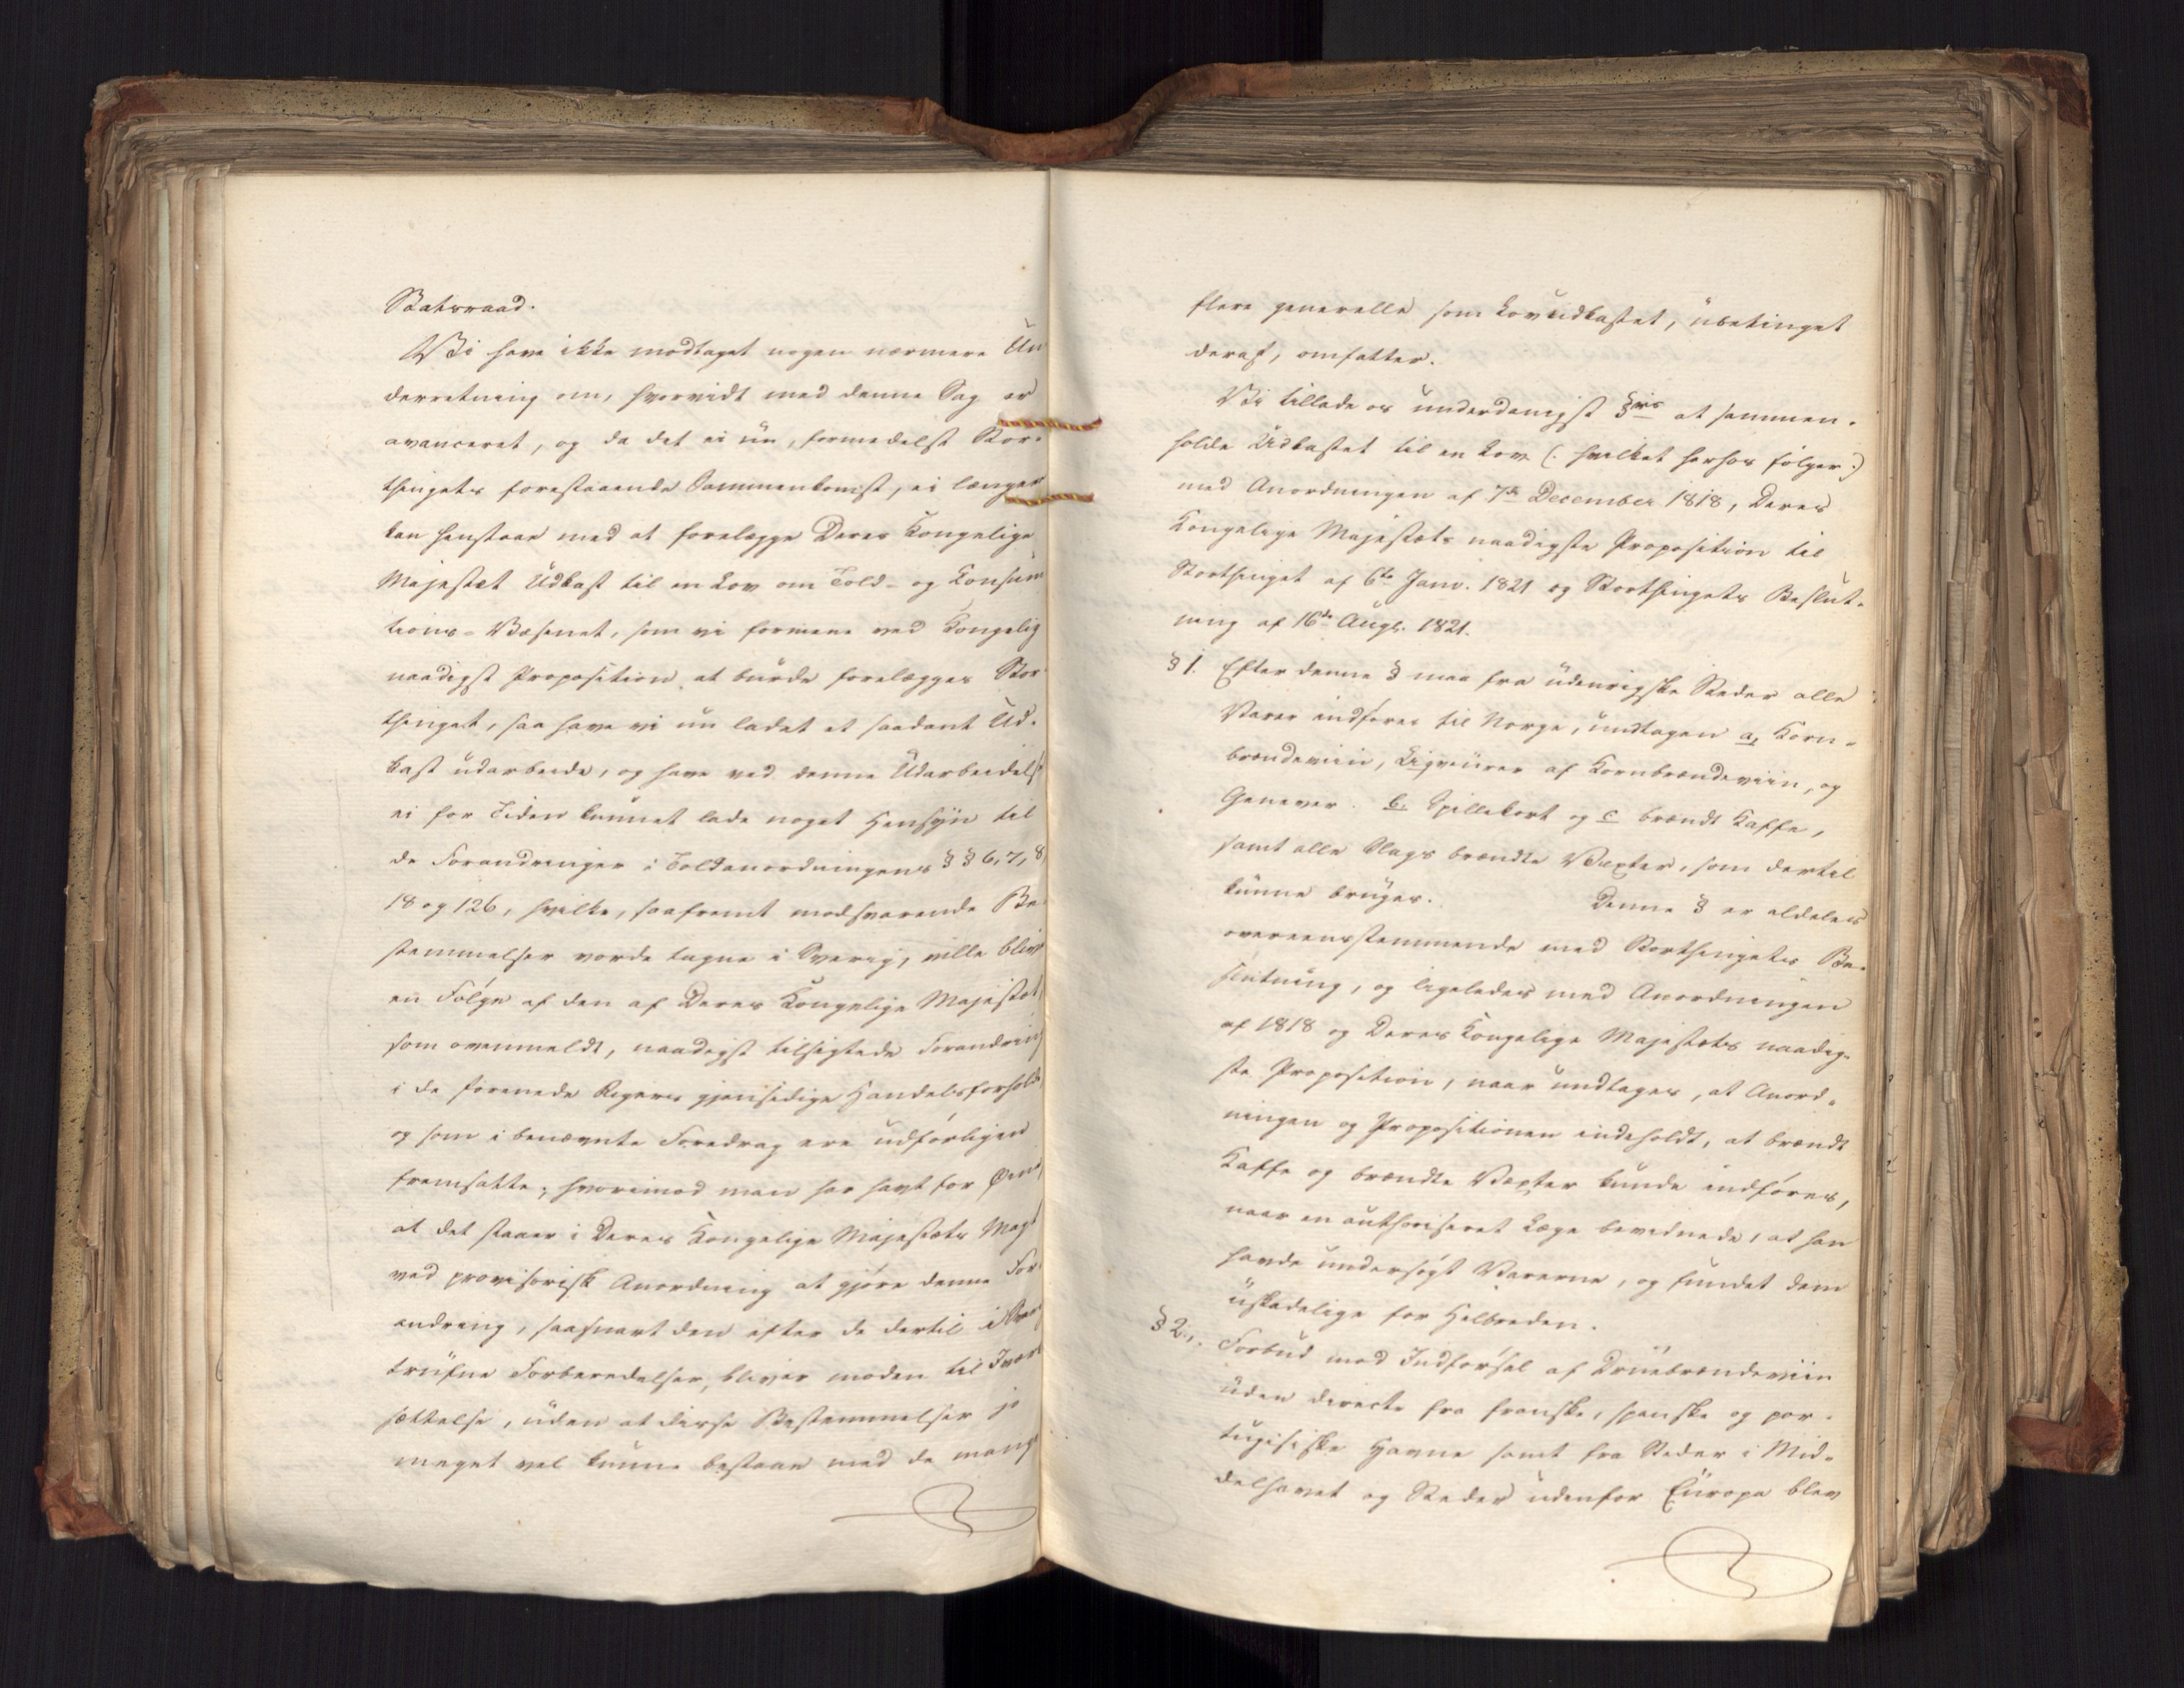 Statsraad.
Vi have ikke modtaget nogen nærmere Un
derretning om, hvorvidt med denne Sag er
avanceret, og da det ei nu, formedelst Stor-
thingets forestaaende Sammenkomst, ei længer
kan henstaae med at forelægge Deres Kongelige
Majestæt Udkast til en Lov om Told- og Consum
tions-Væsenet, som vi formene ved Kongelig
naadigst Proposition at burde forelægges Stor
thinget, saa have vi nu ladet et saadant Ud-
kast udarbeide, og have ved denne Udarbeidelse
ei for Tiden kunnet lade noget Hensyn til
de Forandringer i Toldanordningens §§ 6, 7, 8,
18 og 126, hvilke, saafremt modsvarende Be
stemmelser vorde tagne i Sverig, ville blive
en Følge af den af Deres Kongelige Majestæt,
som ovenmeldt, naadigst tilsigtede Forandring
i de forenede Rigers gjensidige Handelsforhold,
og som i benævnte Foredrag ere udførligen
fremsatte; hvorimod man har havt for Øine,
at det staaer i Deres Kongelige Majestæts Magt
ved provisorisk Anordning at gjøre denne For
andring, saasnart den efter de dertil i
trufne Forberedelser, bliver moden til Iværk
sættelse, uden at disse Bestemmelser jo
meget vel kunne bestaae med de mange
flere generelle som Lovudkastet, ubetinget
deraf, omfatter.
Vi tillade os underdanigst §vis at sammen-
holde Udkastet til en Lov (: hvilket herhos følger :)
med Anordningen af 7de December 1818, Deres
Kongelige Majestæts naadigste Proposition til
Storthinget af 6te Janv. 1821 og Storthingets Beslut-
ning af 16de Augt. 1821.
§ 1. Efter denne § maa fra udenrigske Steder alle
Varer indføres til Norge, undtagen a, Korn-
brændeviin, Liqveurer af Kornbrændeviin, og
Genever. b, Spillekort og c brændt Kaffe,
samt alle Slags brændte Væxter, som dertil
kunne bruges. Denne § er aldeles
overeensstemmende med Storthingets Be-
slutning, og ligeledes med Anordningen
af 1818 og Deres Kongelige Majestæts naadig-
ste Proposition, naar undtages, at Anord-
ningen og Propositionen indeholdt, at brændt
Kaffe og brændte Væxter kunde indføres,
naar en authoriseret Læge bevidnede, at han
havde undersøgt Varerne, og fundet dem
uskadelige for Helbreden.
§ 2. Forbud mod Indførsel af Druebrændeviin
uden directe fra franske, spanske og por-
tugisiske Havne samt fra Steder i Mid-
delhavet og Steder udenfor Europa blev